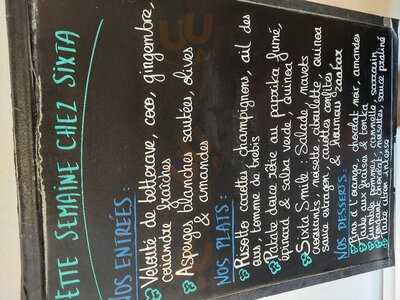 ETTE SEMAINE CHEZ SIXTA
NOS ENTRÉES :
Velouté de betterave, coco, gingembre,
coriandre fraîches
Asperges blanches sautées, olives
& amandes
NOS PLATS :
Risotto carottes, champignons, ail des
ours, tomme de brebis
Patate douce rôtie au paprika fumé,
épinard & salsa verde, quinoa
Sixta Smile : Salade, navets
croquants, noisette, ciboulette, quinoa
sauce estragon, carottes confites
& houmous zaatar
NOS DESSERTS :
l'orange, chocolat noir, amandes
Tarte aux fraises & tonka
Crumble pommes, cannelle, sarrasin
chocolat, noisettes, sauce praliné
Tarte citron intense